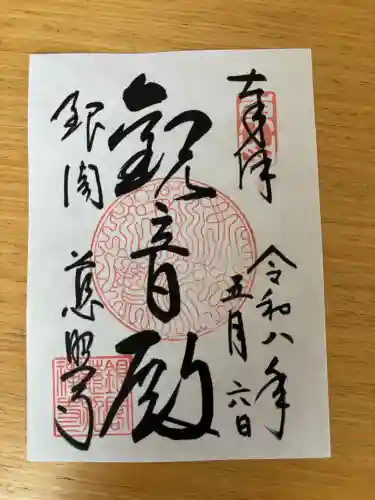 奉拝
令和八年
五月六日
観音殿
銀閣
慈照寺